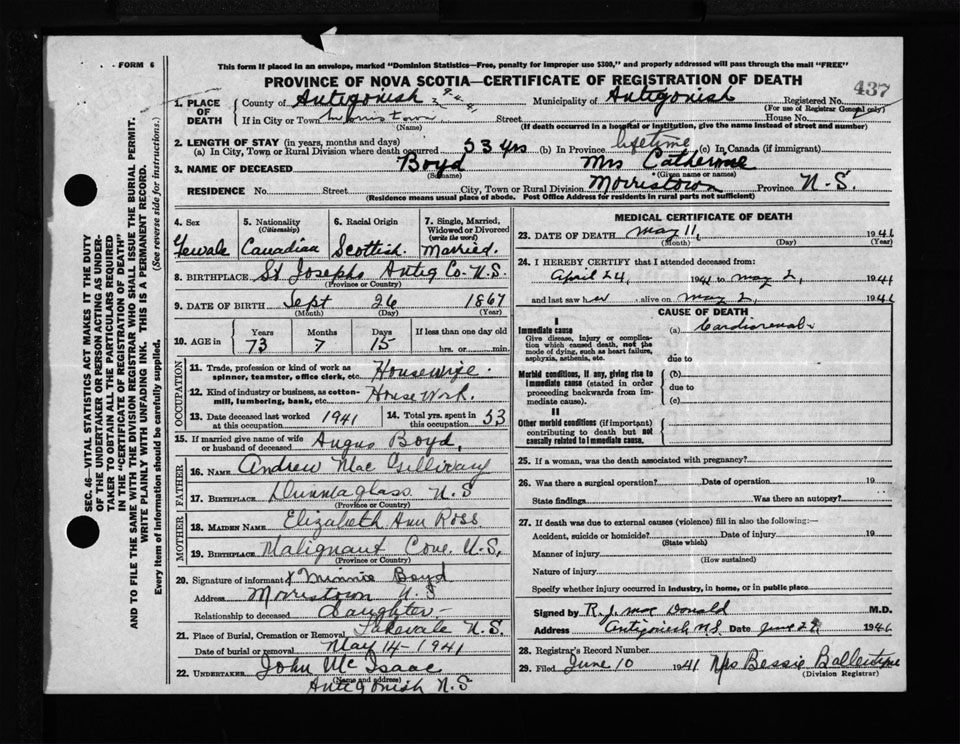 FORM 6
This form if placed in an envelope, marked "Dominion Statistics—Free, penalty for improper use $300," and properly addressed will pass through the mail "FREE"
PROVINCE OF NOVA SCOTIA—CERTIFICATE OF REGISTRATION OF DEATH
437
1. PLACE OF DEATH
County of Antigonish Municipality of Antigonish Registered No.
(For use of Registrar General only)
If in City or Town Morristown Street House No.
(Name) (If death occurred in a hospital or institution, give the name instead of street and number)
2. LENGTH OF STAY (in years, months and days)
(a) In City, Town or Rural Division where death occurred 53 yrs (b) In Province lifetime (c) In Canada (if immigrant)
3. NAME OF DECEASED Boyd Mrs Catherine
(Surname) (Given name or names)
RESIDENCE No. Street City, Town or Rural Division Morristown Province N.S.
(Residence means usual place of abode. Post Office Address for residents in rural parts not sufficient)
SEC. 46—VITAL STATISTICS ACT MAKES IT THE DUTY
OF THE UNDERTAKER OR PERSON ACTING AS UNDER-
TAKER TO OBTAIN ALL THE PARTICULARS REQUIRED
IN THE "CERTIFICATE OF REGISTRATION OF DEATH"
AND TO FILE THE SAME WITH THE DIVISION REGISTRAR WHO SHALL ISSUE THE BURIAL PERMIT.
WRITE PLAINLY WITH UNFADING INK. THIS IS A PERMANENT RECORD.
Every item of information should be carefully supplied. (See reverse side for instructions.)
4. Sex 5. Nationality (Citizenship) 6. Racial Origin 7. Single, Married, Widowed or Divorced (write the word)
Female Canadian Scottish Married.
8. BIRTHPLACE St Josephs Antig Co. N.S.
(Province or Country)
9. DATE OF BIRTH Sept 26 1867
(Month) (Day) (Year)
10. AGE in Years Months Days If less than one day old
73 7 15 hrs. or min.
OCCUPATION
11. Trade, profession or kind of work as spinner, teamster, office clerk, etc. Housewife.
12. Kind of industry or business, as cotton-mill, lumbering, bank, etc. House Work.
13. Date deceased last worked at this occupation 1941 14. Total yrs. spent in 53
15. If married give name of wife or husband of deceased Angus Boyd.
FATHER
16. NAME Andrew Mac Gillivary
17. BIRTHPLACE Dunmaglass N.S
(Province or Country)
MOTHER
18. MAIDEN NAME Elizabeth Ann Ross
19. BIRTHPLACE Malignant Cove. N.S.
(Province or Country)
20. Signature of informant x Minnie Boyd
Address Morristown N.S
Relationship to deceased daughter—
21. Place of Burial, Cremation or Removal Lakevale N.S.
Date of burial or removal May 14 - 1941
22. UNDERTAKER John Mc Isaac
(Name and address)
Antigonish N.S
MEDICAL CERTIFICATE OF DEATH
23. DATE OF DEATH May 11, 1941
(Month) (Day) (Year)
24. I HEREBY CERTIFY that I attended deceased from:
April 24, 1941 to May 2, 1941
and last saw her alive on May 2, 1941
CAUSE OF DEATH
I
Immediate cause (a) Cardiorenal
Give disease, injury or complication which caused death, not the mode of dying, such as heart failure, asphyxia, asthenia, etc.
due to
Morbid conditions, if any, giving rise to immediate cause (stated in order proceeding backwards from immediate cause).
(b)
due to
(c)
II
Other morbid conditions (if important) contributing to death but not causally related to immediate cause.
25. If a woman, was the death associated with pregnancy?
26. Was there a surgical operation? Date of operation 19
State findings Was there an autopsy?
27. If death was due to external causes (violence) fill in also the following:—
Accident, suicide or homicide? Date of injury 19
(State which)
Manner of injury
(How sustained)
Nature of injury
Specify whether injury occurred in industry, in home, or in public place
Signed by R. J. Mac Donald M.D.
Address Antigonish N.S. Date June 2 1941
28. Registrar's Record Number
29. Filed June 10 1941 Mrs Bessie Ballentyne
(Division Registrar)